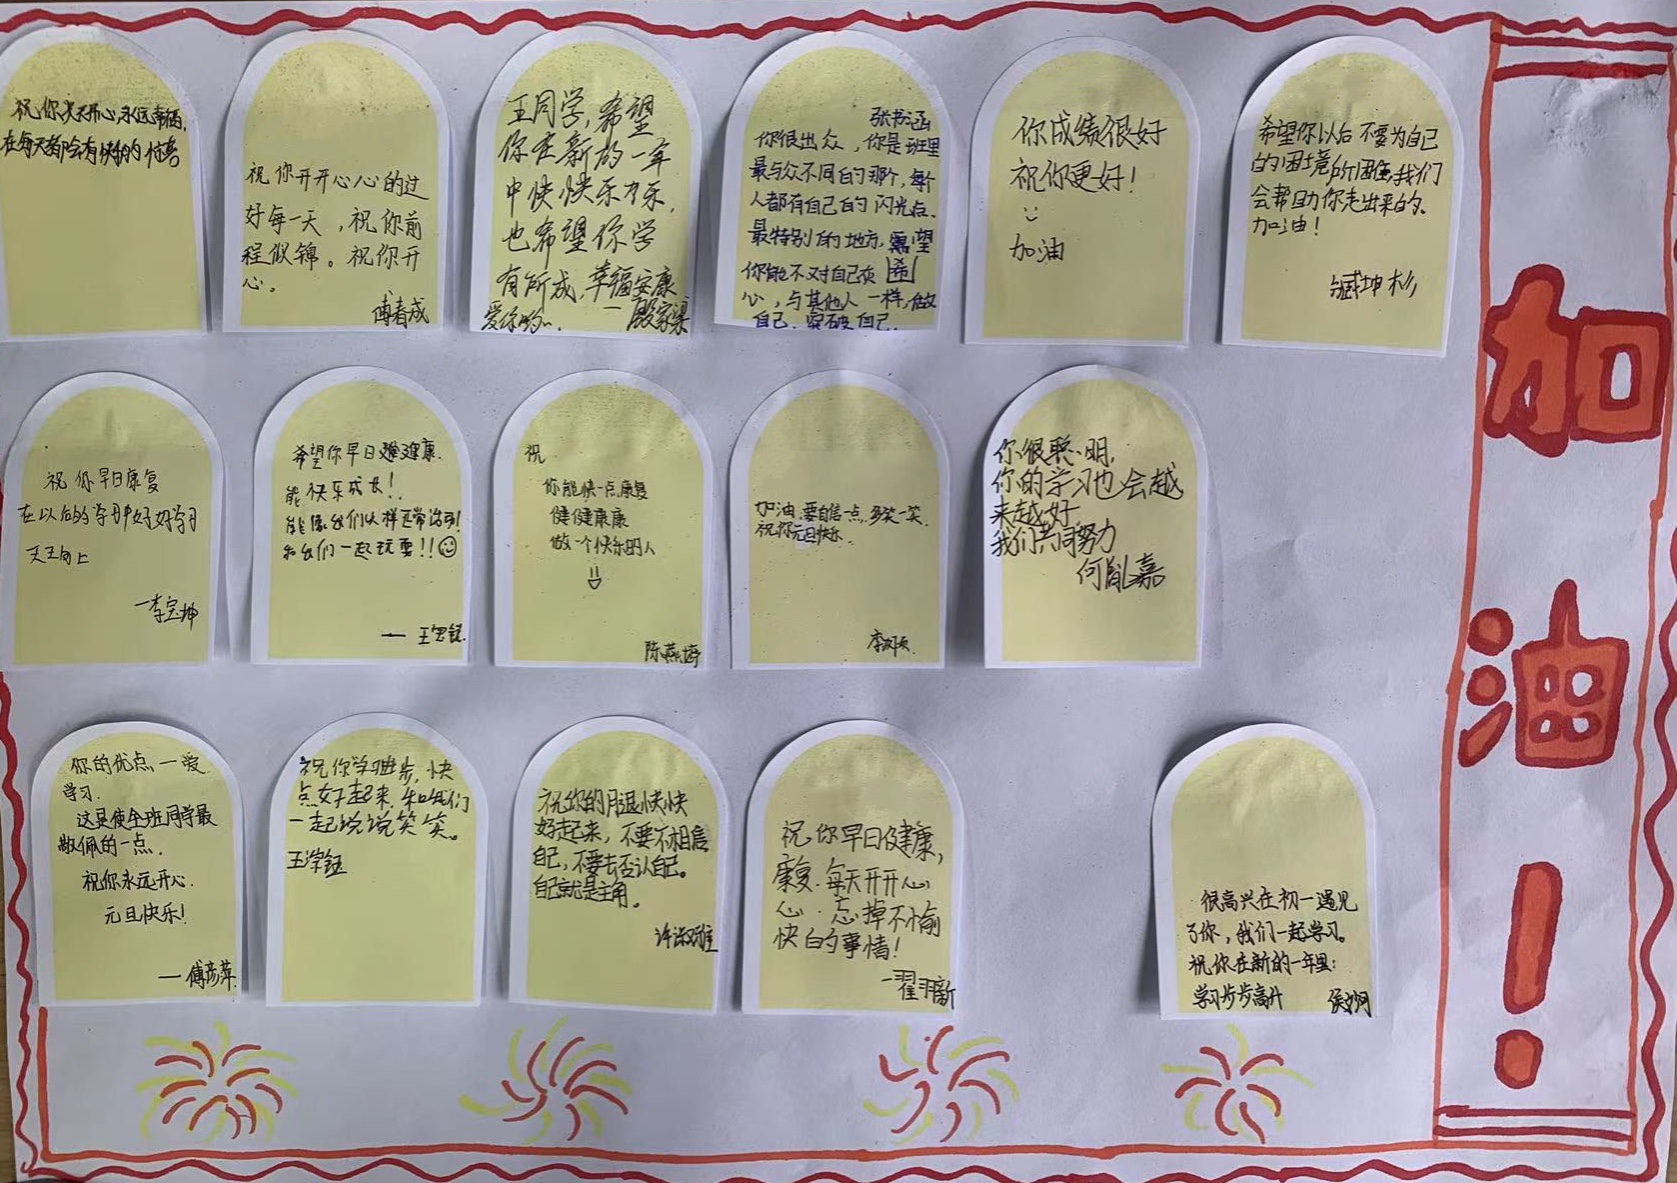 祝你天天开心,永远幸福,
在每天都会有快乐的
祝你开开心心的过
好每一天，祝你前
程似锦。祝你开
心。
傅春成
王同学,希望
你在新的一年
中快快乐乐,
也希望你学
有所成,幸福安康
爱你哟..
一殷家梁
张书涵
你很出众，你是班里
最与众不同的那个,每个
人都有自己的闪光点、
最特别的地方,希望
你能不对自己灰
心，与其他人一样,做
自己、突破自己.
你成绩很好
祝你更好!
加油
希望你以后不要为自己
的困境所困住,我们
会帮助你走出来的、
加油!
臧坤杉
祝你早日康复
在以后的学习中好好学习
天天向上
一李宝坤
希望你早日健康.
能快乐成长!
能像我们以样正常活动!
和我们一起玩耍!!
祝
你能快一点康复
健健康康
做一个快乐的人
陈燕婷
加油,要自信一点,多笑一笑.
祝你元旦快乐.
你很聪明,
你的学习也会越
来越好
我们共同努力
何胤嘉
你的优点,一爱
学习.
这是使全班同学最
敬佩的一点.
祝你永远开心.
元旦快乐!
一傅彦萍
祝你学习进步,快
点好起来,和我们
一起说说笑笑。
祝你的腿快快
好起来，不要不相信
自己,不要去否认自己。
自己就是主角。
祝你早日健康,
康复.每天开开心
心.忘掉不愉
快的事情!
一翟羽新
很高兴在初一遇见
了你，我们一起学习。
祝你在新的一年里:
学习步步高升
加油！